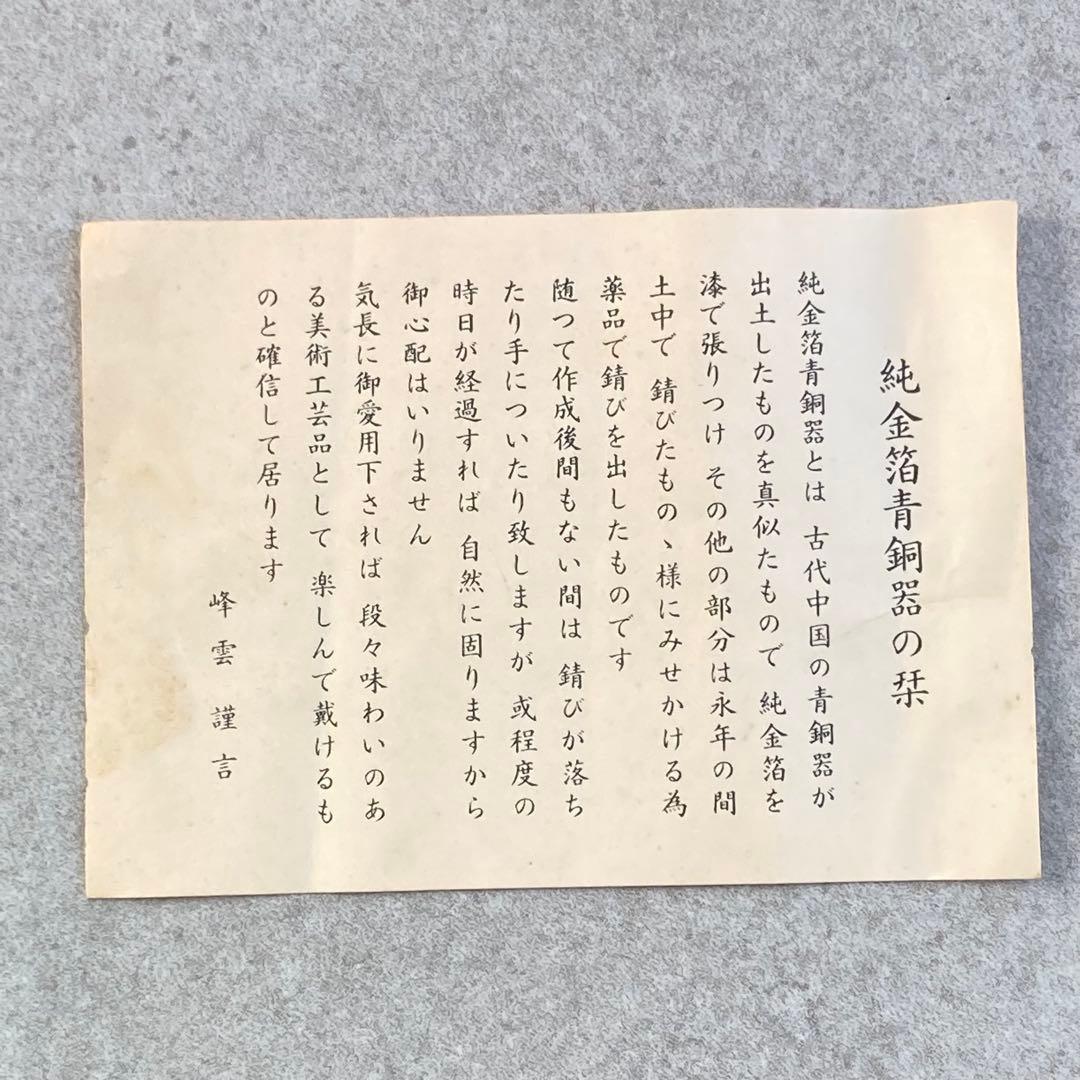 純金箔青銅器の栞
純金箔青銅器とは 古代中国の青銅器が
出土したものを真似たもので 純金箔を
漆で張りつけ その他の部分は永年の間
土中で 錆びたものゝ様にみせかける為
薬品で錆びを出したものです
随つて作成後間もない間は 錆びが落ち
たり手についたり致しますが 或程度の
時日が経過すれば 自然に固りますから
御心配はいりません
気長に御愛用下されば 段々味わいのあ
る美術工芸品として 楽しんで戴けるも
のと確信して居ります
峰雲 謹言